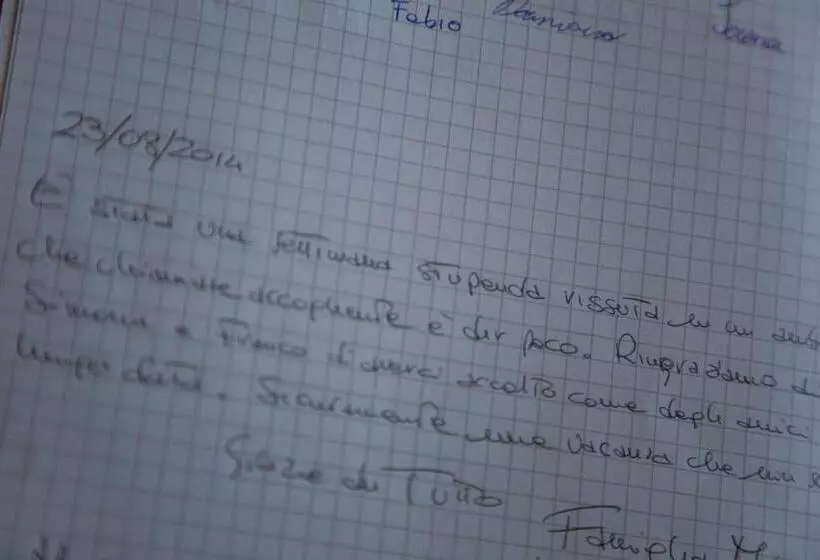 Fabio
23/08/2014
È stata una settimana stupenda vissuta in un
che chiamare accogliente è dir poco. Ringraziamo
Simona e Franco di averci accolto come degli amici
data. Sicuramente una vacanza che
Grazie di Tutto
Famiglia